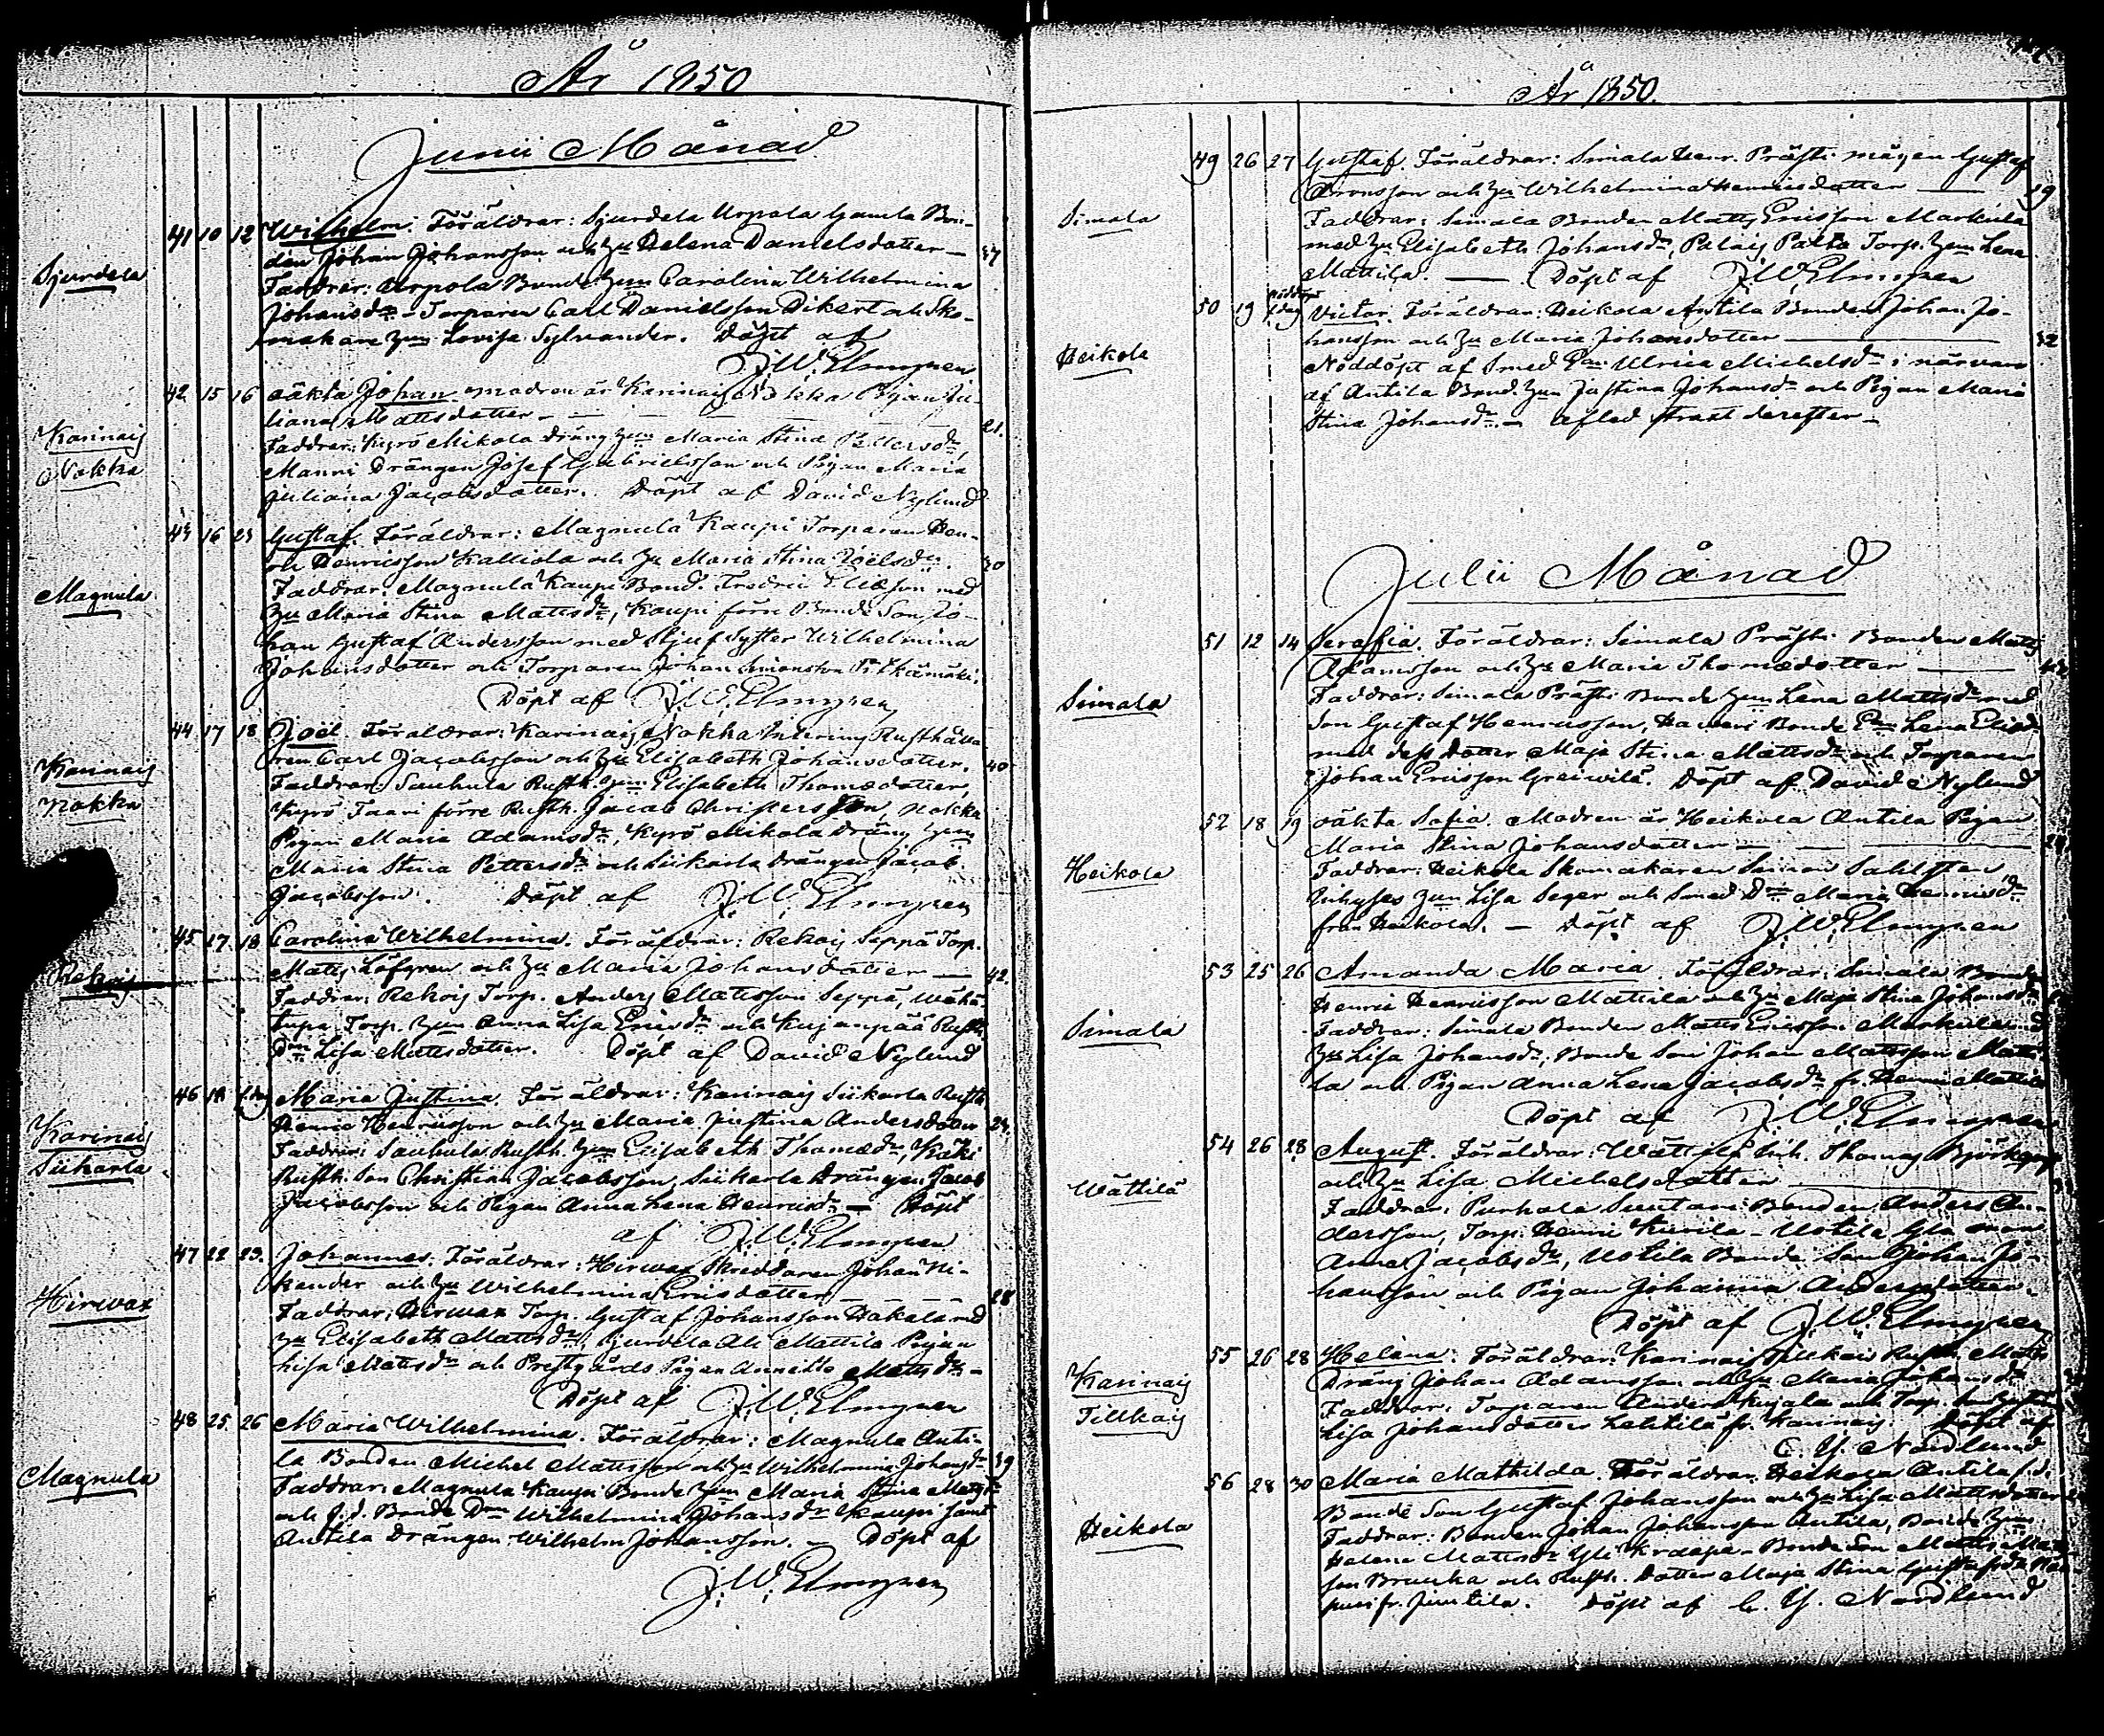 År 1850
Junii Månad
Sjurdela
41 10 12 Wilhelm. Föräldrar: Sjurdela Urpola Gamla Bon-
den Johan Johansson och Hu Helena Danielsdotter — 37
Faddrar: Urpola Bonde Hun Carolina Wilhelmina
Johansdr - Torparen Carl Danielsson Dikert och Sko-
makare Hun Lovisa Sylvander. Döpt af
J.W. Elmgren
Karinais
Nokka
42 15 16 oäkta Johan modren är Karinais Nokka Pigan Ju-
liana Mattsdotter — 21.
Faddrar: Kyrö Mikola dräng Hun Maria Stina Pettersdr,
Manni Drängen Josef Gabrielsson och Pigan Maria
Juliana Jacobsdotter. Döpt af David Nylund
Magnula
43 16 23 Gustaf. Föräldrar: Magnula Kaupi Torparen Hen-
rik Henricsson Kalliola och Hu Maria Stina Joëlsdr. 30
Faddrar: Magnula Kaupi Bond. Fredric med
Hu Maria Stina Mattsdr, Kaupi förre Bonde Son Jo-
han Gustaf Andersson med Stjuf Syster Wilhelmina
Johansdotter och Torparen Johan Simonsson Pitkämäki.
Döpt af J.W. Elmgren
Karinais
Nokka
44 17 18 Joël. Föräldrar: Karinais Nokka Interims Rusthålla-
ren Carl Jacobsson och Hu Elisabeth Johansdotter. 40
Faddrar: Sauhula Rusth. Hun Elisabeth Thomædotter,
Kyrö Taari förre Rusth. Jacob Christersson, Nokka
Pigan Maria Adamsdr, Kyrö Mikola Dräng Hun
Maria Stina Pettersdr och Siikarla drängen Jacob
Jacobsson. Döpt af J.W. Elmgren
Rekois
45 17 18 Carolina Wilhelmina. Föräldrar: Rekois Seppä Torp.
Matts Löfgren och Hu Maria Johansdotter — 42.
Faddrar: Rekois Torp. Anders Mattsson Seppä, Wähä-
tupa Torp. Hun Anna Lisa Ericsdr och Kujanpää Rusth.
Dr Lisa Mattsdotter. Döpt af David Nylund
Karinais
Siikarla
46 18 s.dag Maria Justina. Föräldrar: Karinais Siikarla Rusth.
Henric Henricsson och Hu Maria Justina Andersdotter 24.
Faddrar: Sauhula Rusth. Hun Elisabeth Thomædr, Käki
Rusth. Son Christian Jacobsson, Siikarla Drängen Jacob
Jacobsson och Pigan Anna Lena Henricsdr — Döpt
af J.W. Elmgren
Hirwax
47 22 23. Johannes. Föräldrar: Hirwax Skreddaren Johan Ni-
kander och Hu Wilhelmina Ericsdotter — 28
Faddrar: Hirwax Torp. Gustaf Johansson Hakala med
Hu Elisabeth Mattsdr, Sjurdela Ali Mattila Pigan
Lisa Mattsdr och Prestgårds Pigan Annetta Mattsdr —
Döpt af J.W. Elmgren
Magnula
48 25 26 Maria Wilhelmina. Föräldrar: Magnula Anti-
la Bonden Michel Mattsson och Hu Wilhelmina Johansdr 39
Faddrar: Magnula Kaupi Bonde Hun Maria Stina Mattsdr
och f.d. Bonde Dr Wilhelmina Johansdr Kaupi samt
Antila Drängen Wilhelm Johansson. — Döpt af
J.W. Elmgren
År 1850.
Simala
49 26 27 Gustaf. Föräldrar: Simala Henr. Präfti mågen Gustaf
Aronsson och Hu Wilhelmina Henricsdotter — 19
Faddrar: Simala Bonden Matts Ericsson Markula
med Hu Elisabeth Johansdr, Palais Palta Torp. Hun Lena
Mattila. — Döpt af J.W. Elmgren
Heikola
50 19 nöddöpt s.dag Victor. Föräldrar: Heikola Antila Bonden Johan Jo-
hansson och Hu Maria Johansdotter — 32
Nöddöpt af Smed Ulrica Michelsdr i närvaro
af Antila Bond. Hun Justina Johansdr och Pigan Maria
Stina Johansdr. — afled strax derefter —
Julii Månad
Simala
51 12 14 Serafia. Föräldrar: Simala Präfti Bonden Matts
Adamsson och Hu Maria Thomædotter — 42
Faddrar: Simala Präfti Bonde Hun Lena Mattsdr med
Son Gustaf Henricsson, Bonde Lena Eliedr
med dess dotter Maja Stina Mattsdr och Torparen
Johan Ericsson Greiwilä. Döpt af David Nylund
Heikola
52 18 19 oäkta Sofia. Modren är Heikola Antila Pigan
Maria Stina Johansdotter —
Faddrar: Heikola Skomakaren Simon Sahlsten
Hun Lisa Seger och Smed Dr Maria Henricsdr
från Heikola. — Döpt af J.W. Elmgren
Simala
53 25 26 Amanda Maria. Föräldrar: Simala Bonden
Henric Henricsson Mattila och Hu Maja Stina Johansdr
Faddrar: Simala Bonden Matts Ericsson Markula med
Hu Lisa Johansdr, Bonde Son Johan Mattsson Matti-
la och Pigan Anna Lena Jacobsdr fr. Henric Mattila
Döpt af J.W. Elmgren
Wättilä
54 26 28 August. Föräldrar: Wättilä Inh. Thomas Björkqvist
och Hu Lisa Michelsdotter —
Faddrar: Purhala Suutari Bonden Anders An-
dersson, Torp. Henric Kiwila - Uotila
Anna Jacobsdr, Uotila Bonde Son Johan Jo-
hansson och Pigan Johanna Andersdotter.
Döpt af J.W. Elmgren
Karinais
Tillkais
55 26 28 Helena. Föräldrar: Karinais Tillkais Rusth. Matts
Dräng Johan Adamsson och Hu Maria Johansdr
Faddrar: Torparen Anders Kujala och Torp.
Lisa Johansdotter Lehtilä fr. Karinais. Döpt af
C. G. Nordlund
Heikola
56 28 30 Maria Mathilda. Föräldrar: Heikola Antila f.d.
Bonde Son Gustaf Johansson och Hu Lisa Mattsdotter
Faddrar: Bonden Johan Johansson Antila, Bonde Hun
Helena Mattsdr Yli Kraapa - Bonde Son Matts Matts-
son Bruuka och Rusth. Dotter Maja Stina Gustafsdr
fr. Juutila. Döpt af C. G. Nordlund